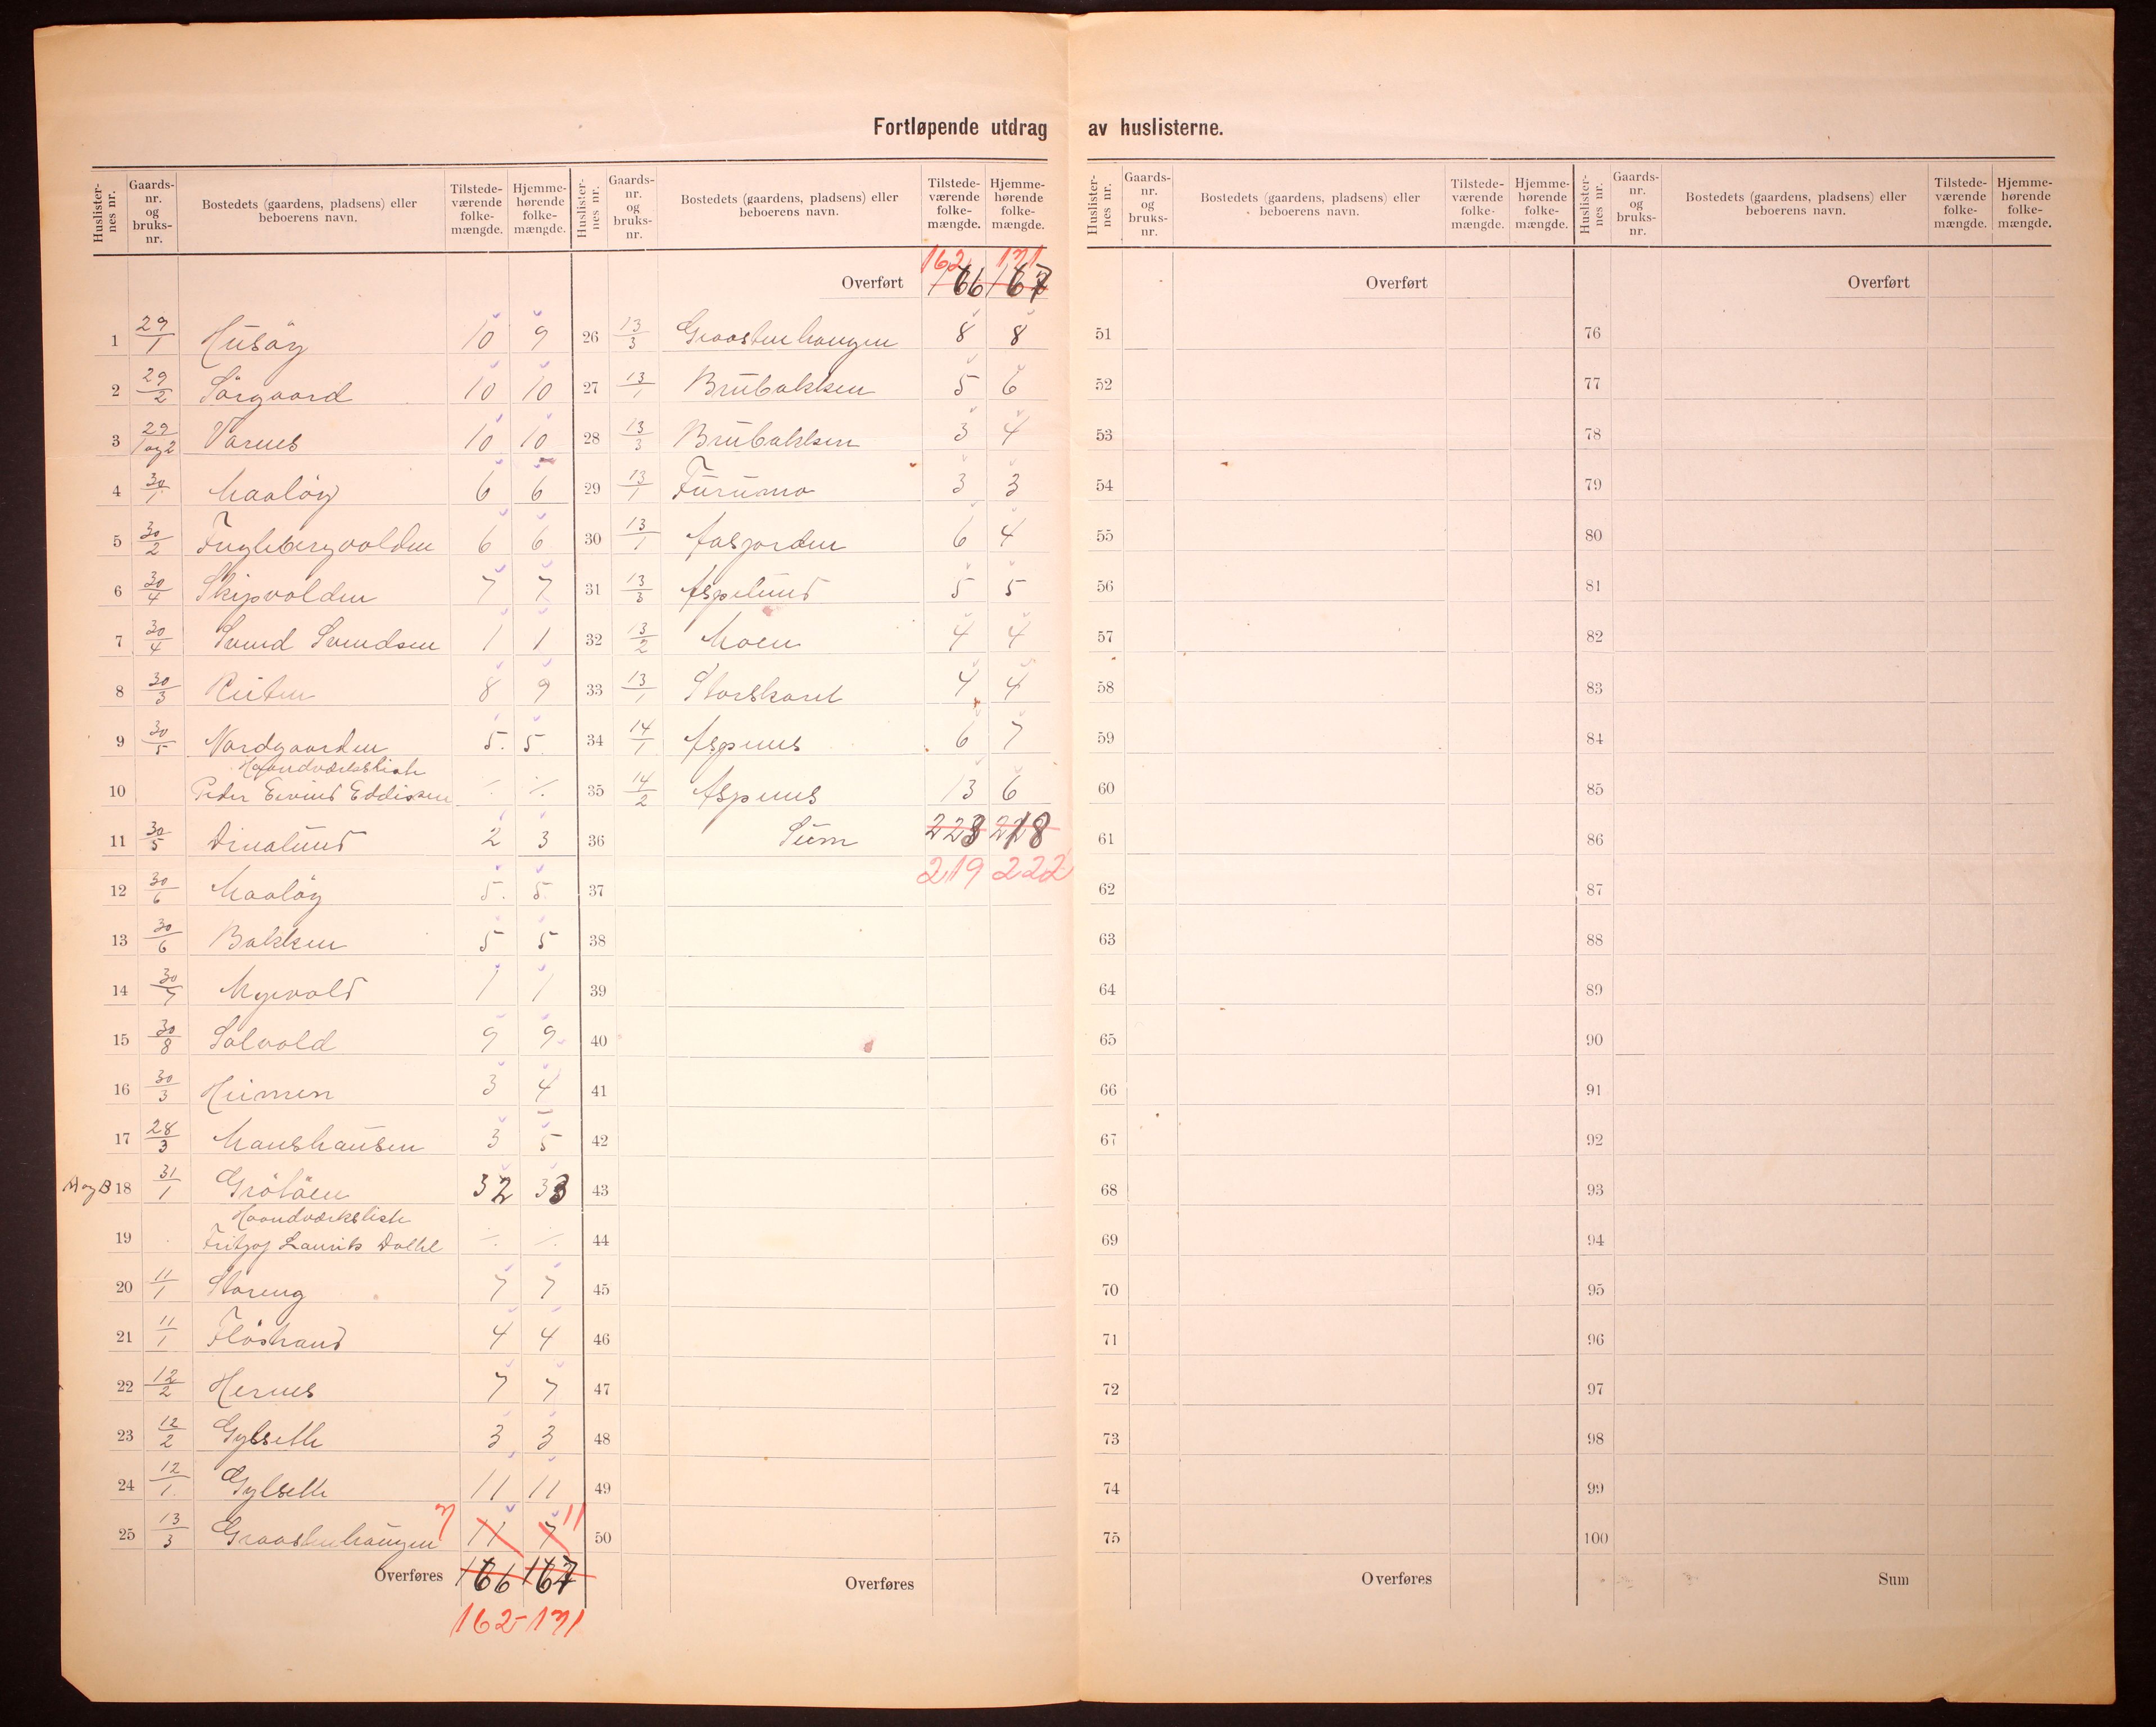 Fortløpende utdrag av huslisterne.
Huslisternes nr. Gaards-nr. og bruks-nr. Bostedets (gaardens, pladsens) eller beboerens navn. Tilstede-værende folke-mængde. Hjemme-hørende folke-mængde.
1 29/1 Husöy 10 9
2 29/2 Sörgaard 10 10
3 29/1og2 Varnes 10 10
4 30/1 Maalöy 6 6
5 30/2 Fuglebergvolden 6 6
6 30/4 Skipvolden 7 7
7 30/4 Svend Svendsen 1 1
8 30/3 Reiten 8 9
9 30/5 Nordgaarden 5. 5.
Haandværksliste
10 Peder Eivind Eddissen ./. ./.
11 30/5 Dinalund 2 3
12 30/6 Maalöy 5. 5.
13 30/6 Bakken 5 5
14 30/7 Myrvold 1 1
15 30/8 Solvold 9 9
16 30/3 Heimen 3 4
17 28/3 Manshausen 3 5
A og B 18 31/1 Grötöen 32 33
Haandværksliste
19 Fritjof Laurits Dahl ./. ./.
20 11/1 Storeng 7 7
21 11/1 Flöstrand 4 4
22 12/2 Hernes 7 7
23 12/2 Gylseth 3 3
24 12/1 Gylseth 11 11
25 13/3 Graastenhaugen 7 11 7 11
Overføres 166 167
162 - 171
Huslisternes nr. Gaards-nr. og bruks-nr. Bostedets (gaardens, pladsens) eller beboerens navn. Tilstede-værende folke-mængde. Hjemme-hørende folke-mængde.
162 171
Overført 166 167
26 13/3 Graastenhaugen 8 8
27 13/1 Brubakken 5 6
28 13/3 Brubakken 3 4
29 13/1 Furumo 3 3
30 13/1 Aasjorden 6 4
31 13/3 Aspelund 5 5
32 13/2 Moen 4 4
33 13/1 Storskaret 4 4
34 14/1 Aspnes 6 7
35 14/2 Aspnes 13 6
36 Sum 223 218
219 222
37
38
39
40
41
42
43
44
45
46
47
48
49
50
Overføres
Huslisternes nr. Gaards-nr. og bruks-nr. Bostedets (gaardens, pladsens) eller beboerens navn. Tilstede-værende folke-mængde. Hjemme-hørende folke-mængde.
Overført
51
52
53
54
55
56
57
58
59
60
61
62
63
64
65
66
67
68
69
70
71
72
73
74
75
Overføres
Huslisternes nr. Gaards-nr. og bruks-nr. Bostedets (gaardens, pladsens) eller beboerens navn. Tilstede-værende folke-mængde. Hjemme-hørende folke-mængde.
Overført
76
77
78
79
80
81
82
83
84
85
86
87
88
89
90
91
92
93
94
95
96
97
98
99
100
Sum